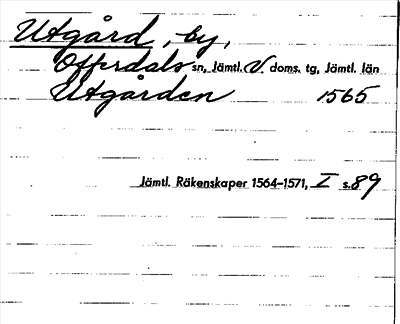 Utgård, by,
Offerdals sn, Jämtl. V. doms. tg, Jämtl. län
Utgården 1565
Jämtl. Räkenskaper 1564-1571, I s. 89